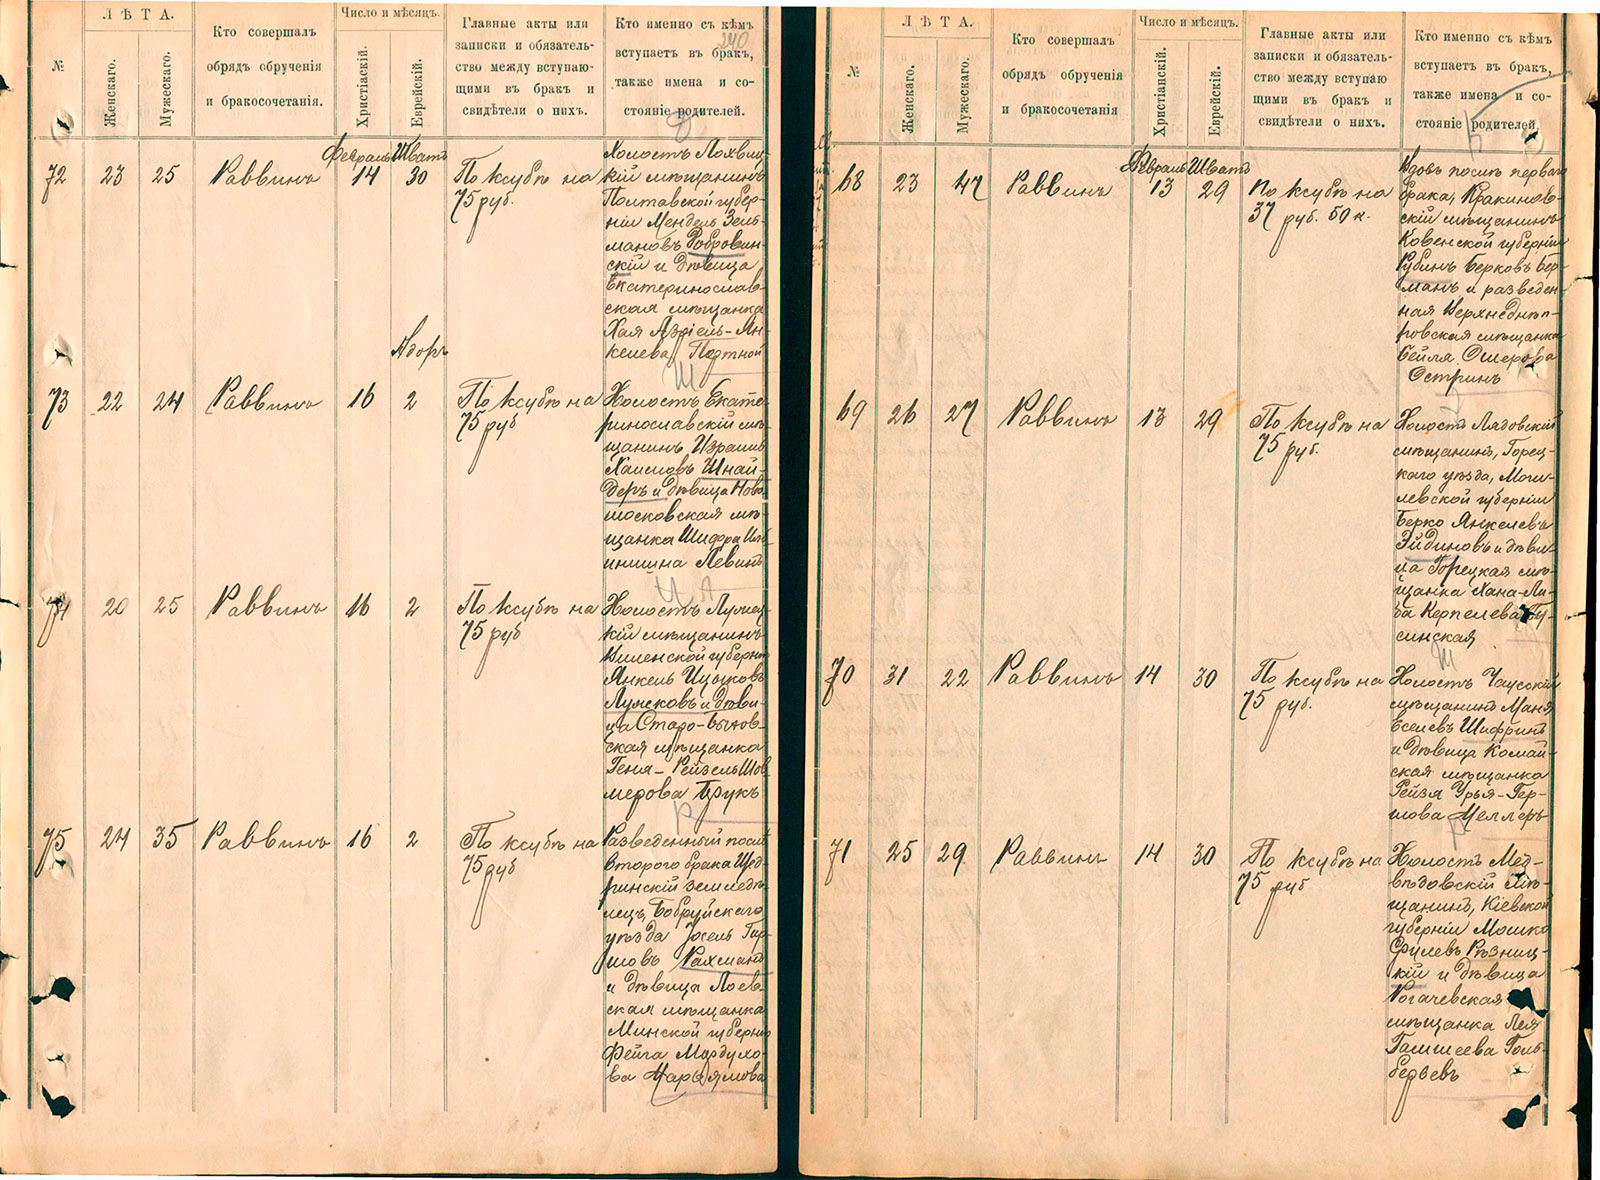 Л Ѣ Т А.
№
Женскаго.
Мужескаго.
Кто совершалъ
обрядъ обрученія
и бракосочетанія.
Число и мѣсяцъ.
Христіаскій.
Еврейскій.
Главные акты или
записки и обязатель-
ство между вступаю-
щими въ бракъ и
свидѣтели о нихъ.
Кто именно съ кѣмъ
вступаетъ въ бракъ,
также имена и со-
стояніе родителей.
240
Февраль Шватъ
72 23 25 Раввинъ 14 30
По ксубѣ на
75 руб.
Холостъ Лохвиц-
кій мѣщанинъ
Полтавской губер-
ніи Мендель Зель-
мановъ Добровин-
скій и дѣвица
Екатеринослав-
ская мѣщанка
Хая Азріель-Ян-
келева Портной
Адоръ
73 22 24 Раввинъ 16 2
По ксубѣ на
75 руб
Холостъ Екате-
ринославскій мѣ-
щанинъ Израиль
Хаимовъ Шнай-
деръ и дѣвица Ново-
московская мѣ-
щанка Шифра
Левитъ
74 20 25 Раввинъ 16 2
По ксубѣ на
75 руб
Холостъ
кій мѣщанинъ
Виленской губерніи
Янкель Ицковъ
Лужковъ и дѣви-
ца Старо-Быхов-
ская мѣщанка
Геня-Рейзель Шов-
мерова Брукъ
75 24 35 Раввинъ 16 2
По ксубѣ на
75 руб
Разведенный послѣ
второго брака Щед-
ринскій земледѣ-
лецъ, Бобруйскаго
уѣзда Іосель Гир-
шовъ Рахманъ
и дѣвица Лоев-
ская мѣщанка
Минской губерніи
Фейга Мордухо-
ва Марьямова
Л Ѣ Т А.
№
Женскаго.
Мужескаго.
Кто совершалъ
обрядъ обрученія
и бракосочетанія
Число и мѣсяцъ.
Христіанскій.
Еврейскій.
Главные акты или
записки и обязатель-
ство между вступаю
щими въ бракъ и
свидѣтели о нихъ.
Кто именно съ кѣмъ
вступаетъ въ бракъ,
также имена и со-
стояніе родителей.
Февраль Шватъ
68 23 47 Раввинъ 13 29
По ксубѣ на
37 руб. 50 к.
Вдовъ послѣ перваго
брака, Кракинов-
скій мѣщанинъ
Ковенской губерніи
Рубинъ Берковъ Бер-
манъ и разведен-
ная Верхнеднѣп-
ровская мѣщанка
Бейля Ошерова
Остринъ
69 26 27 Раввинъ 13 29
По ксубѣ на
75 руб.
Холостъ Лядовскій
мѣщанинъ, Горец-
каго уѣзда, Моги-
левской губерніи
Берко Янкелевъ
Эйдиновъ и дѣви-
ца Горецкая мѣ-
щанка Хана-Ли-
ба Керпелева Бу-
синская
70 31 22 Раввинъ 14 30
По ксубѣ на
75 руб.
Холостъ Чаусскій
мѣщанинъ Маня
Еселевъ Шифринъ
и дѣвица Комай-
ская мѣщанка
Рейзя Урья-Гер-
шова Меллеръ
71 25 29 Раввинъ 14 30
По ксубѣ на
75 руб
Холостъ Мед-
вѣдовскій мѣ-
щанинъ, Кіевской
губерніи Мошко
Срулевъ Рѣзниц-
кій и дѣвица
Рогачевская
мѣщанка Лея
Гамшеева Голь-
бераевъ